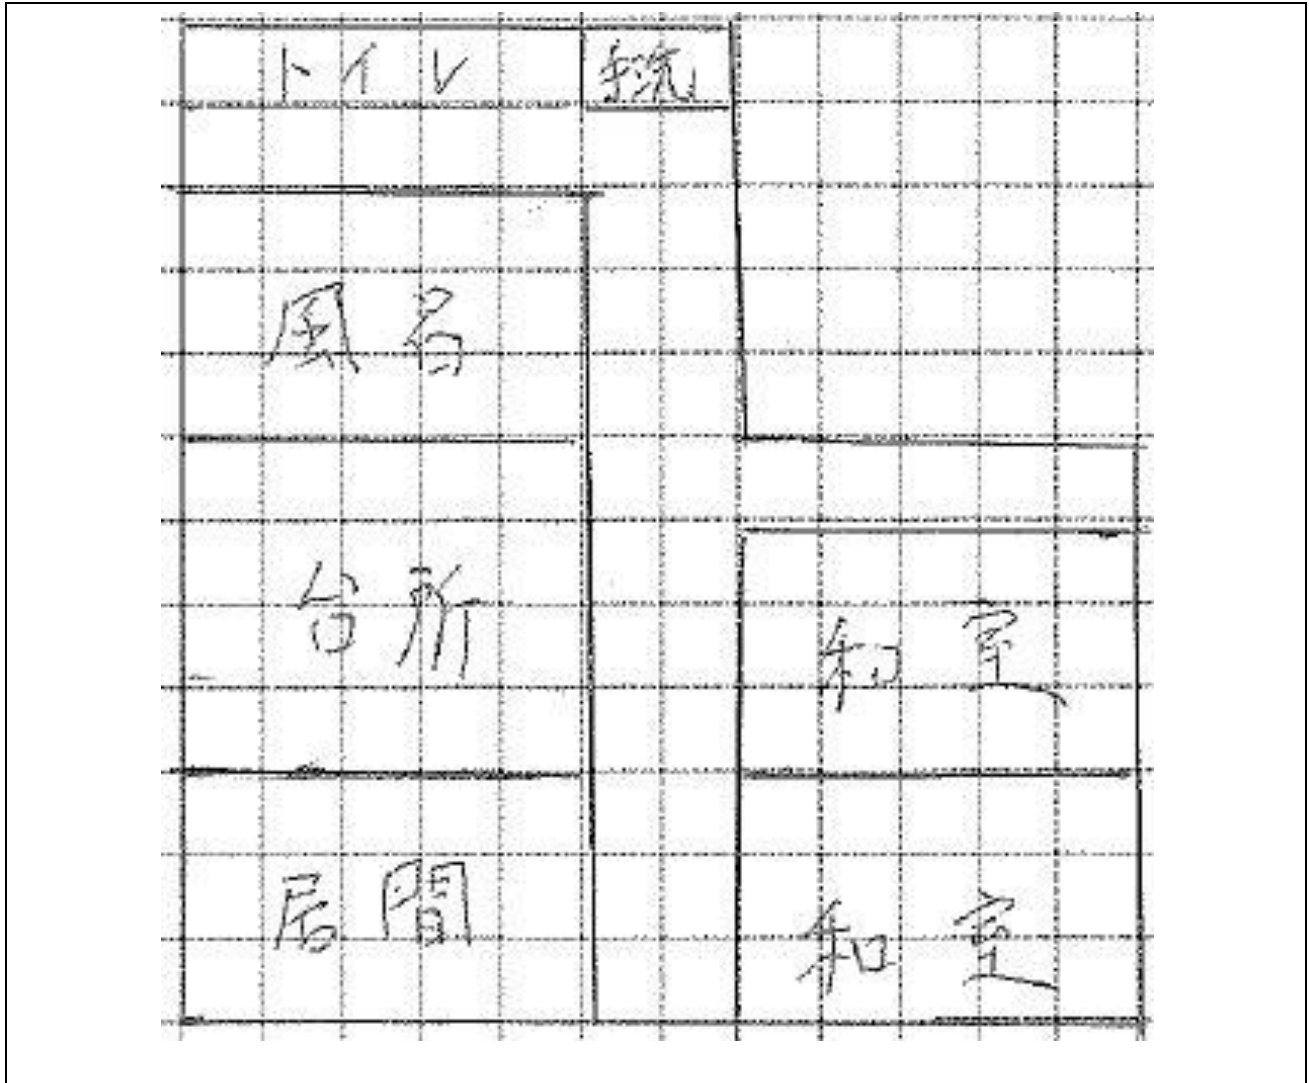 トイレ
手洗
風呂
台所
和室
居間
和室